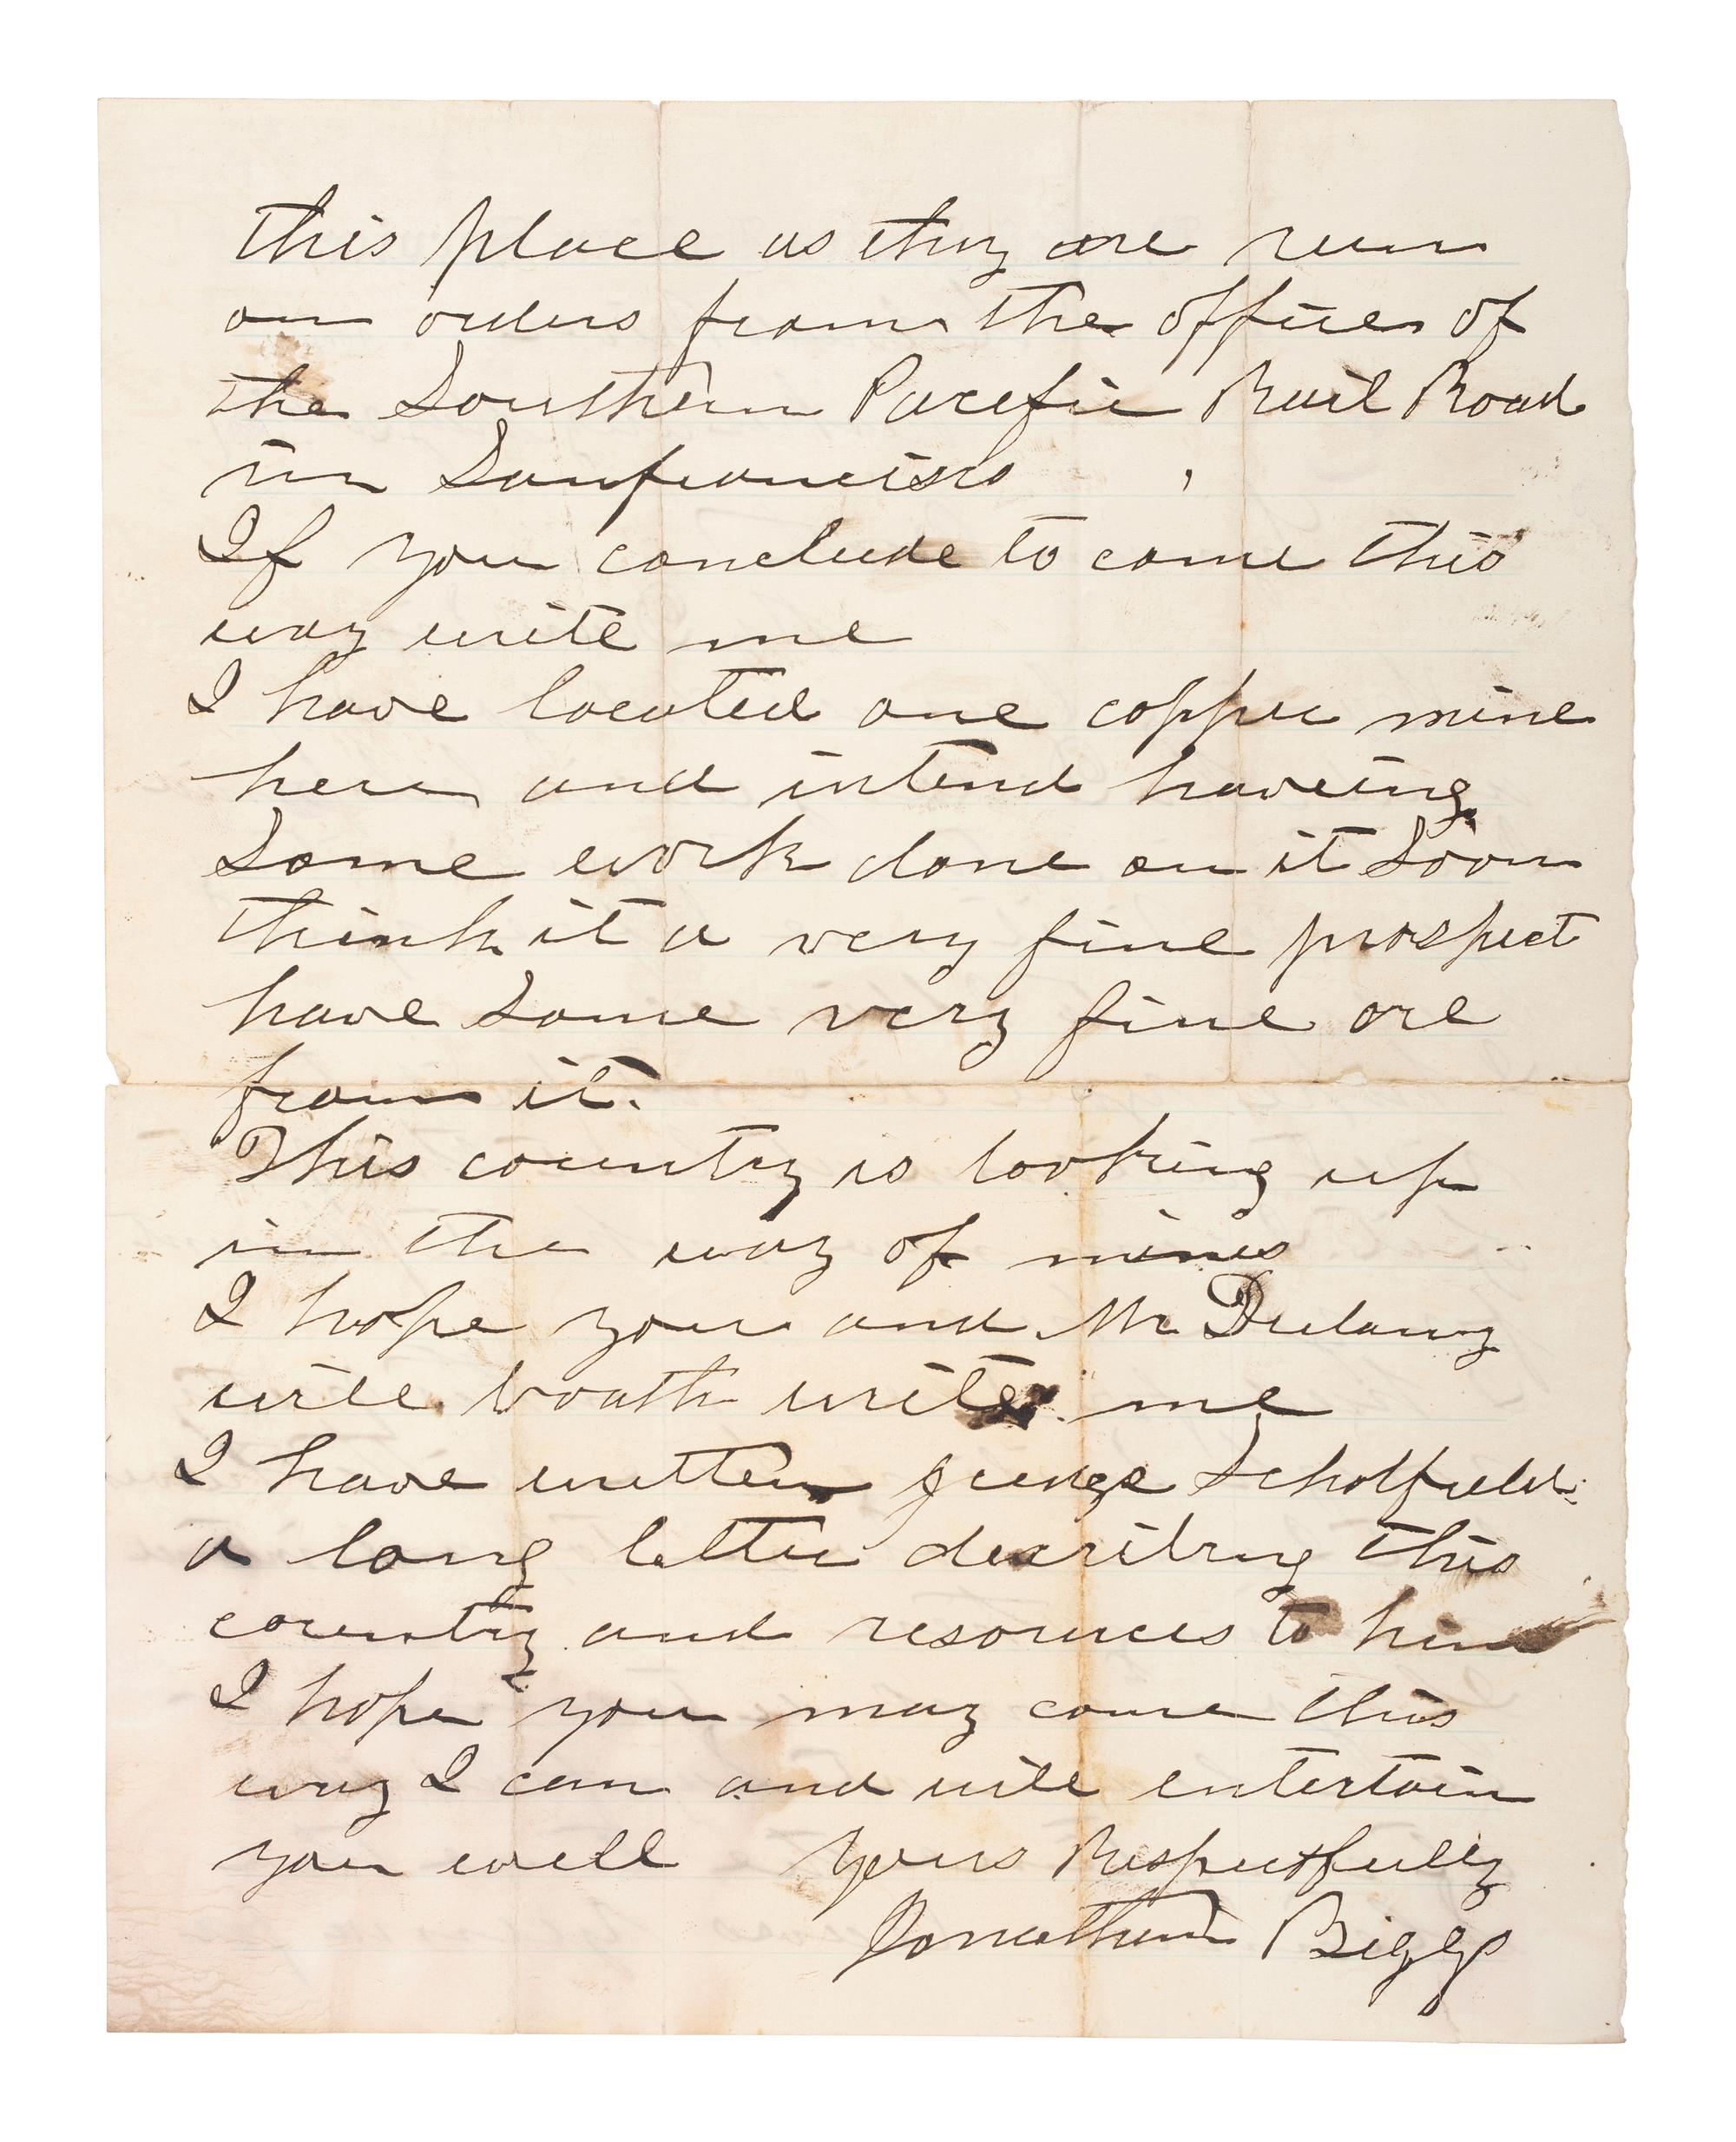 this place as they are run
on orders from the offices of
the Southern Pacific Rail Road
in Sanfrancisco
If you conclude to come this
way write me
I have located one copper mine
here and intend haveing
Some work done on it Soon
think it a very fine prospect
have Some very fine ore
from it.
This country is looking up
in the way of mines
I hope you and Mr Dulany
will boath write me
I have written judge Scholfield
a long letter describing this
country and resources to him
I hope you may come this
way I can and will entertain
you well Yours Respectfully
Jonathan Biggs